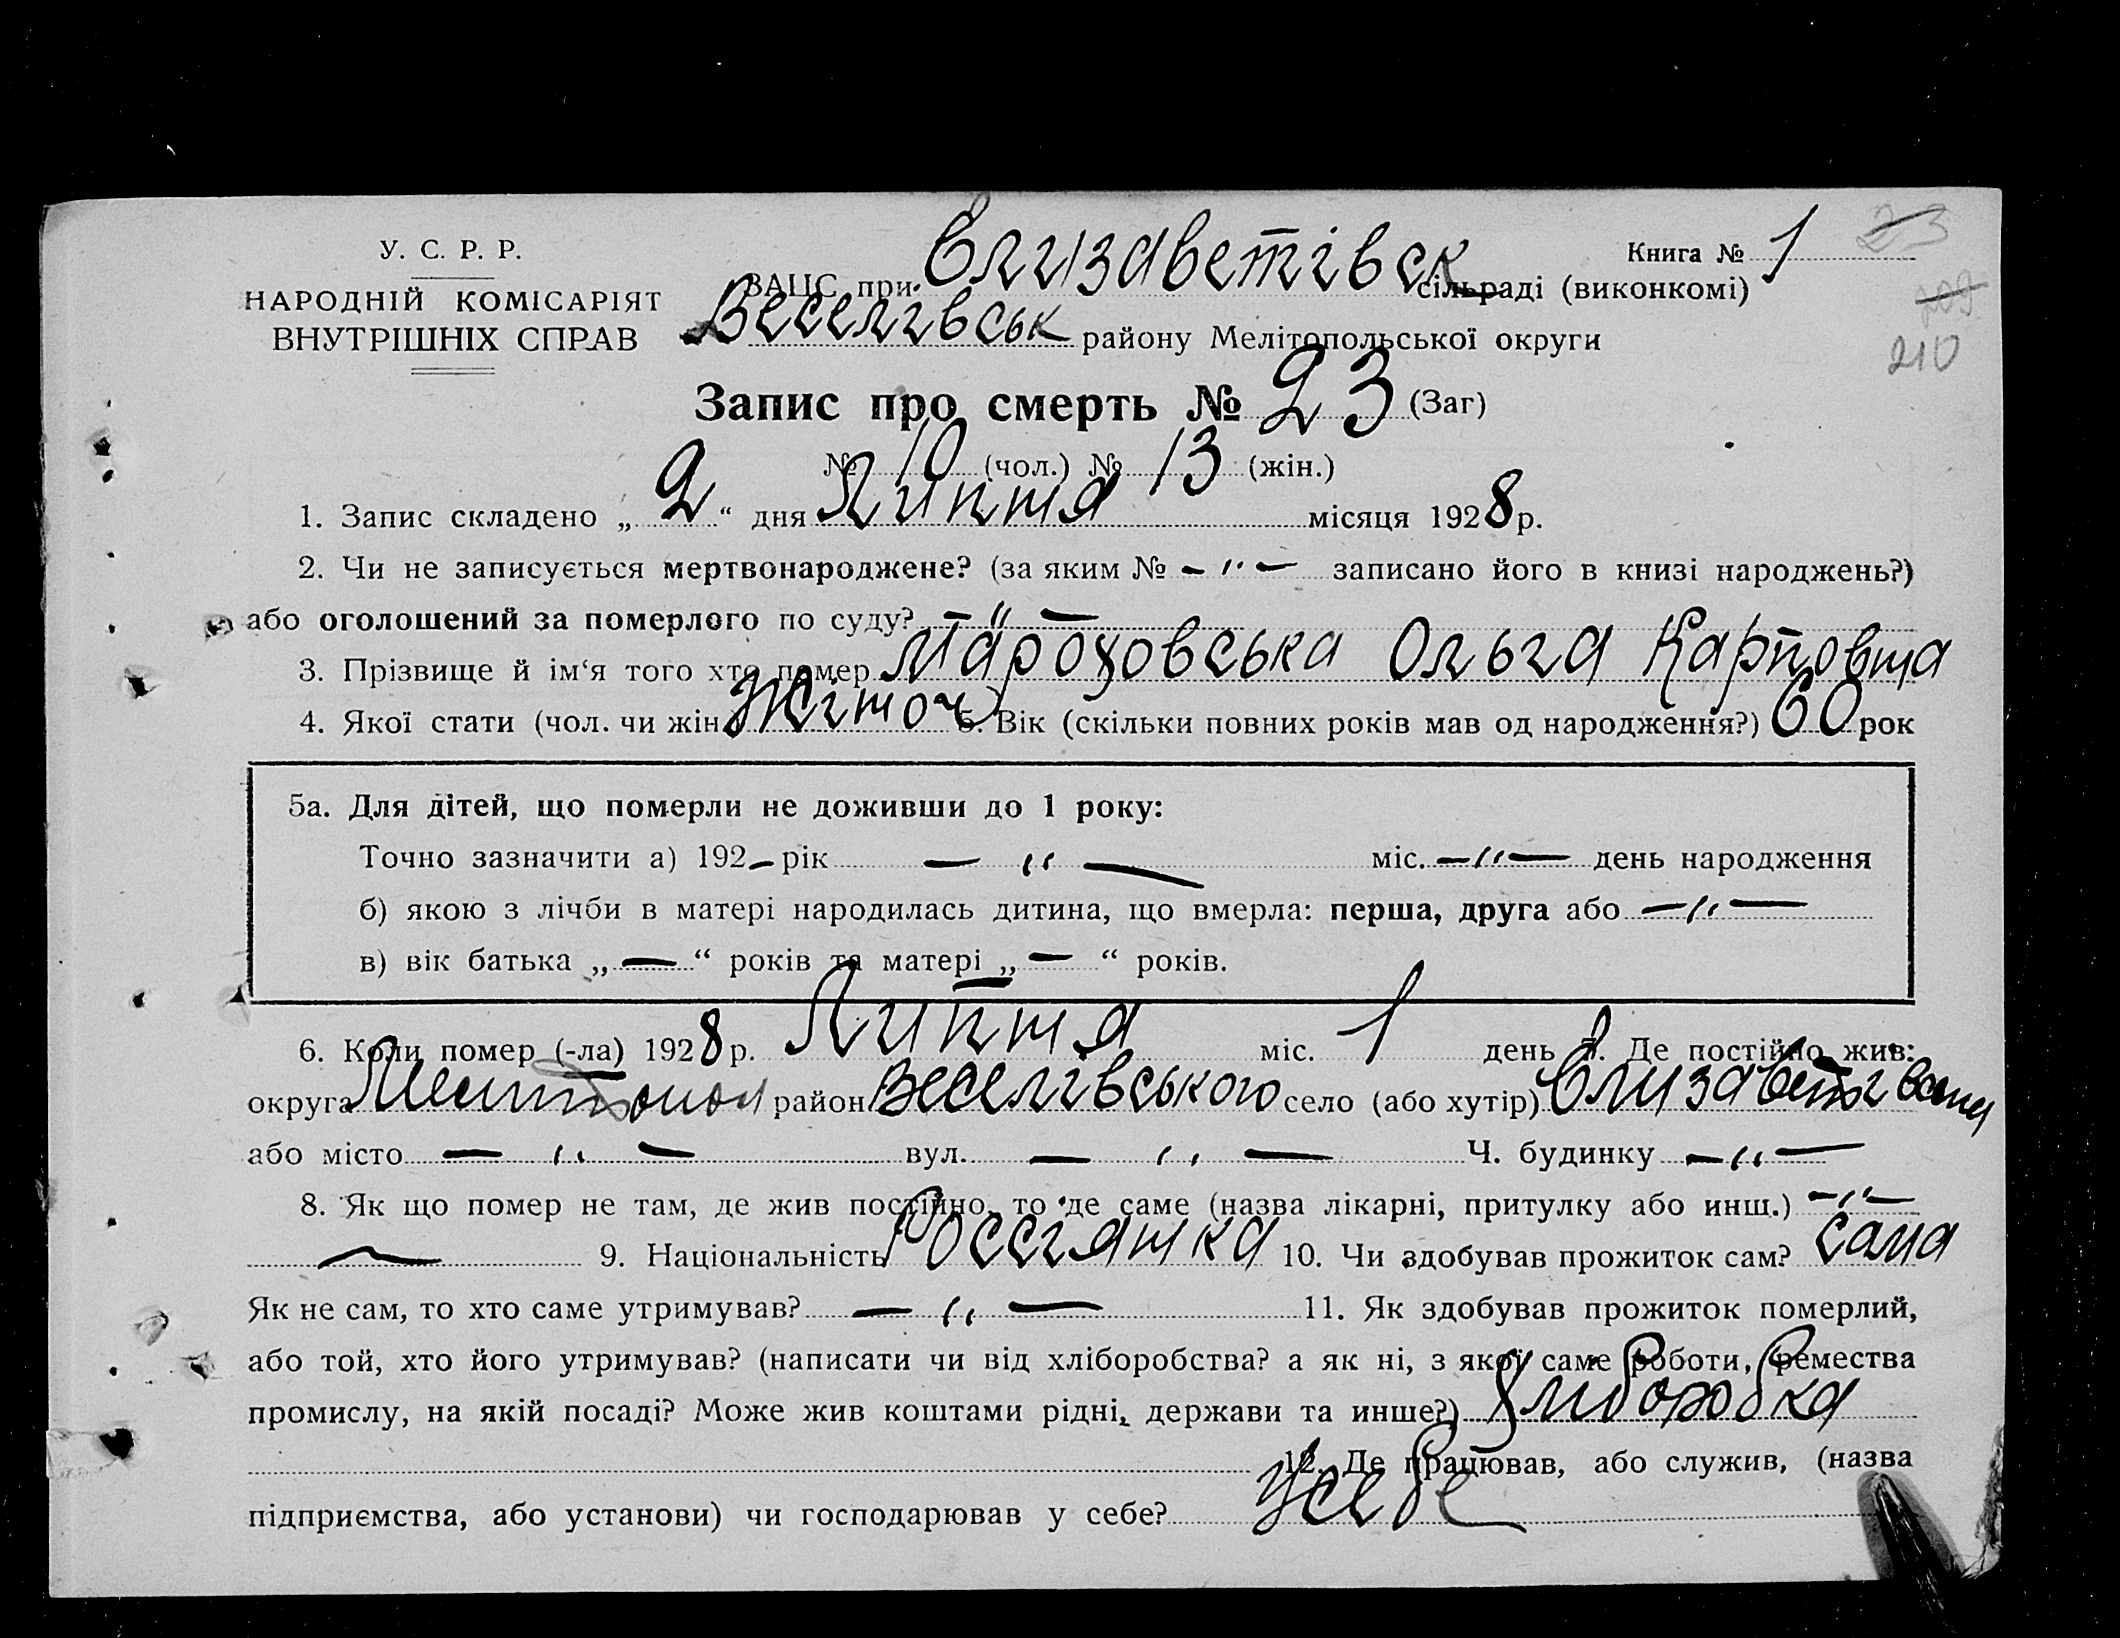 У. С. Р. Р.
НАРОДНІЙ КОМІСАРІЯТ
ВНУТРІШНІХ СПРАВ
Книга № 1 23
ЗАЦС при Єлизаветівск сільраді (виконкомі)
209
Веселівськ району Мелітопольської округи
210
Запис про смерть № 23 (Заг)
№ 10 (чол.) № 13 (жін.)
1. Запис складено „ 2 “ дня Липня місяця 1928 р.
2. Чи не записується мертвонароджене? (за яким № — " — записано його в книзі народжень?)
або оголошений за померлого по суду? — " —
3. Прізвище й ім‘я того хто помер Ольга Карповна
4. Якої стати (чол. чи жін 5. Вік (скільки повних років мав од народження?) 60 рок
5а. Для дітей, що померли не доживши до 1 року:
Точно зазначити а) 192 — рік — " — міс. — " — день народження
б) якою з лічби в матері народилась дитина, що вмерла: перша, друга або — " —
в) вік батька „ — “ років та матері „ — “ років.
6. Коли помер (-ла) 1928 р. Липня міс. 1 день 7. Де постійно жив:
округа район Веселівського село (або хутір)
або місто — " — вул. — " — Ч. будинку — " —
8. Як що помер не там, де жив постійно, то де саме (назва лікарні, притулку або инш.) — " —
— 9. Національність Россіянка 10. Чи здобував прожиток сам? сама
Як не сам, то хто саме утримував? — " — 11. Як здобував прожиток померлий,
або той, хто його утримував? (написати чи від хліборобства? а як ні, з якої саме роботи, ремества
промислу, на якій посаді? Може жив коштами рідні, держави та инше?) Хлиборобка
12. Де працював, або служив, (назва
підприємства, або установи) чи господарював у себе? У себе